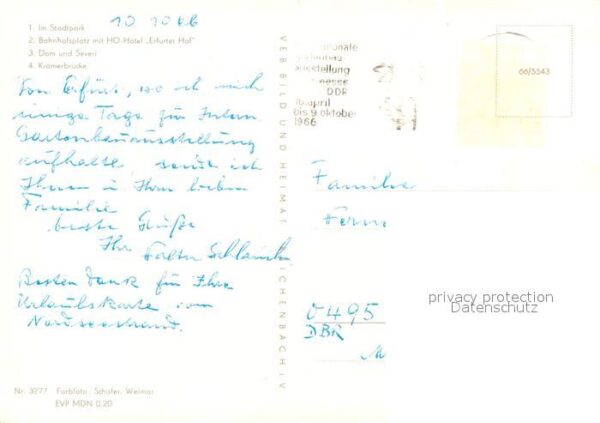 10 10 66
1. Im Stadtpark
2. Bahnhofsplatz mit HO-Hotel „Erfurter Hof"
3. Dom und Severi
4. Krämerbrücke
Von Erfurt, wo ich mich
einige Tage zur Intern.
Gartenbauausstellung
aufhalte, sende ich
Ihnen u. Ihrer lieben
Familie
beste Grüße
Ihr
Besten Dank für Ihre
Urlaubskarte vom
Nordseestrand.
Nr. 3277 Farbfoto: Schäfer, Weimar
EVP MDN 0,20
VEB BILD UND HEIMAT REICHENBACH i. V.
ausstellung
DDR
april
bis 9 oktober
1966
66/5543
Familie
0495
DBR
M
privacy protection
Datenschutz